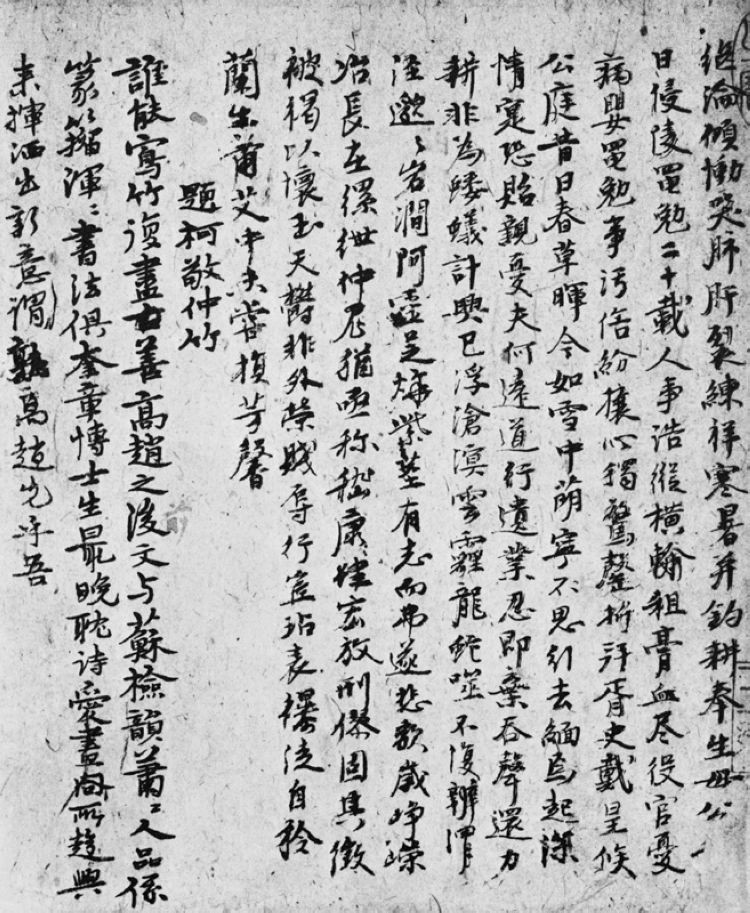 继淪傾慟哭肺肝裂練祥寒暑并釣耕奉生母公
日侵陵黽勉二十載人事浩縱橫輸租膏血尽役官憂
病嬰黽勉事污俗紛攘心獨驚罄折拜胥史戴星候
公庭昔日春草暉今如雪中萌寧不思引去緬焉起深
情寔恐貽親憂夫何遠道行遺業忍即棄吞聲還力
耕非為螻蟻計興已浮滄溟雲霾龍蛇噬不復辨渭
涇邈〻岩澗阿靈芝燁紫莖有志而弗遂悲歌歲崢嶸
冶長在縲绁仲尼猶亟称嵇康肆宏放刑僇固其徵
被褐以懷玉天爵非外榮賤辱行豈玷表襮徒自矜
蘭生蕭艾中未嘗損芳馨
題柯敬仲竹
誰能寫竹復盡善高趙之後文与蘇檢韻蕭〻人品係
篆籀渾〻書法俱奎章博士生最晚耽詩愛畫同所趨興
来揮洒出新意謂孰高趙先乎吾